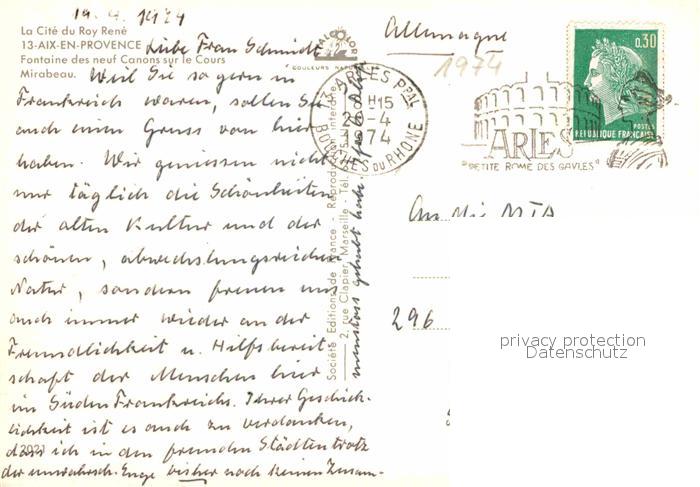 19.4.1974
La Cité du Roy René
13-AIX-EN-PROVENCE
Fontaine des neuf Canons sur le Cours
Mirabeau.
Liebe Frau Schmidt
Weil Sie so gern in
Frankreich waren, sollen Sie
auch einen Gruss von hier
haben. Wir geniessen nicht
nur täglich die Schönheiten
der alten Kultur und der
schönen, abwechslungsreichen
Natur, sondern freuen uns
auch immer wieder an der
Freundlichkeit u. Hilfsbereit-
schaft der Menschen hier
im Süden Frankreichs. Ihrer Geschick-
lichkeit ist es auch zu verdanken,
dass ich in den fremden Städten trotz
der Enge bisher noch keinen Zusam-
menstoss gehabt habe.
COULEURS NATURELLES
Société Editions de France - Reproduction interdite
2, rue Clapier, Marseille - Tél.
13 ARLES PPAL
H15
2 -4
1974
BOUCHES DU RHONE
ARLES
"PETITE ROME DES GAULES"
Allemagne
1974
0,30
POSTES
REPUBLIQUE FRANÇAISE
An
296
privacy protection
Datenschutz